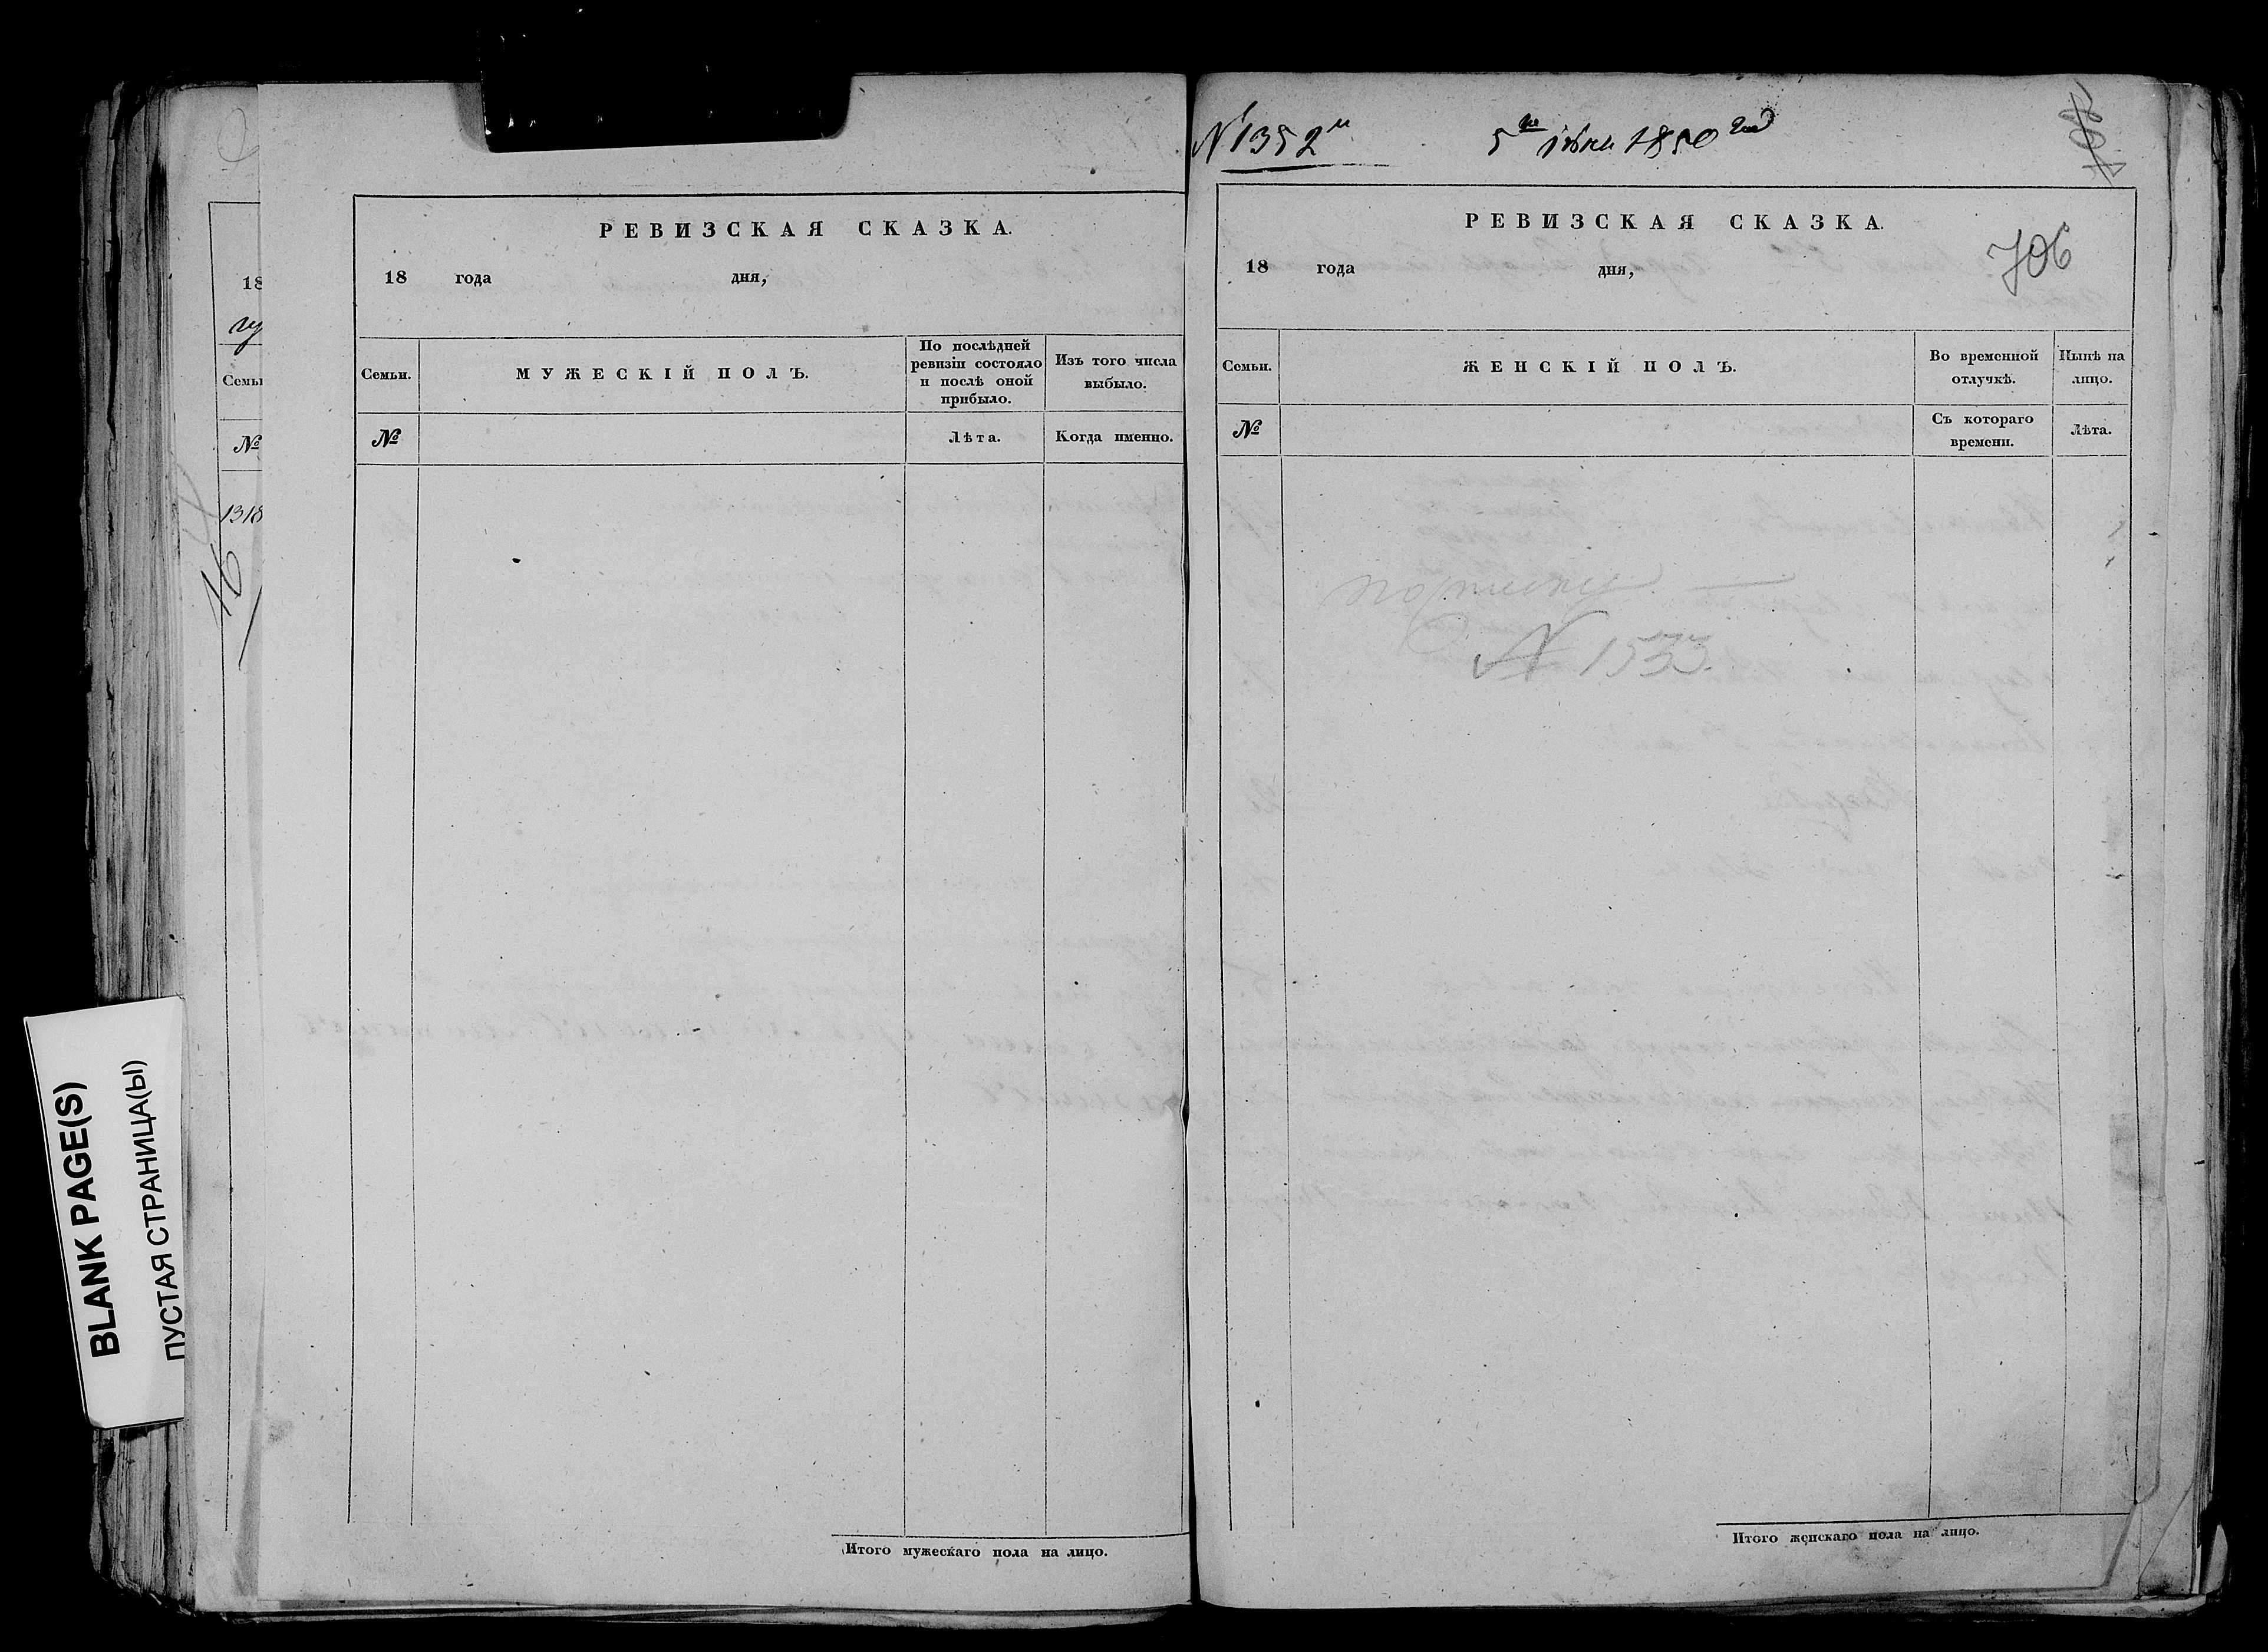 18
Семьи
№
1318
16
РЕВИЗСКАЯ СКАЗКА.
18 года дня,
Семьи.
МУЖЕСКІЙ ПОЛЪ.
По послѣдней ревизіи состояло и послѣ оной прибыло.
Изъ того числа выбыло.
№
Лѣта.
Когда именно.
Итого мужескаго пола на лицо.
BLANK PAGE(S)
ПУСТАЯ СТРАНИЦА(Ы)
N 1352й
5го іюня 1850 год
РЕВИЗСКАЯ СКАЗКА.
706
18 года дня,
Семьи.
ЖЕНСКІЙ ПОЛЪ.
Во временной отлучкѣ.
Нынѣ на лицо.
№
Съ котораго времени.
Лѣта.
N 1533.
Итого женскаго пола на лицо.